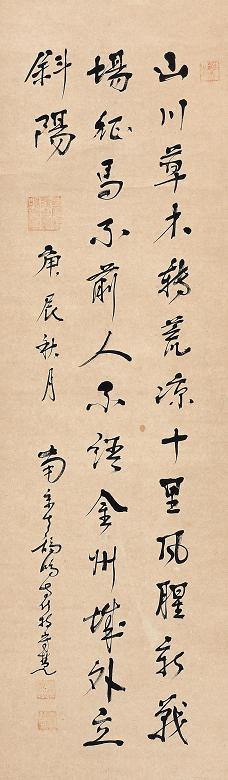 山川草木轉荒凉十里風腥新戰
場征馬不前人不語金州城外立
斜陽
庚辰秋月
南京